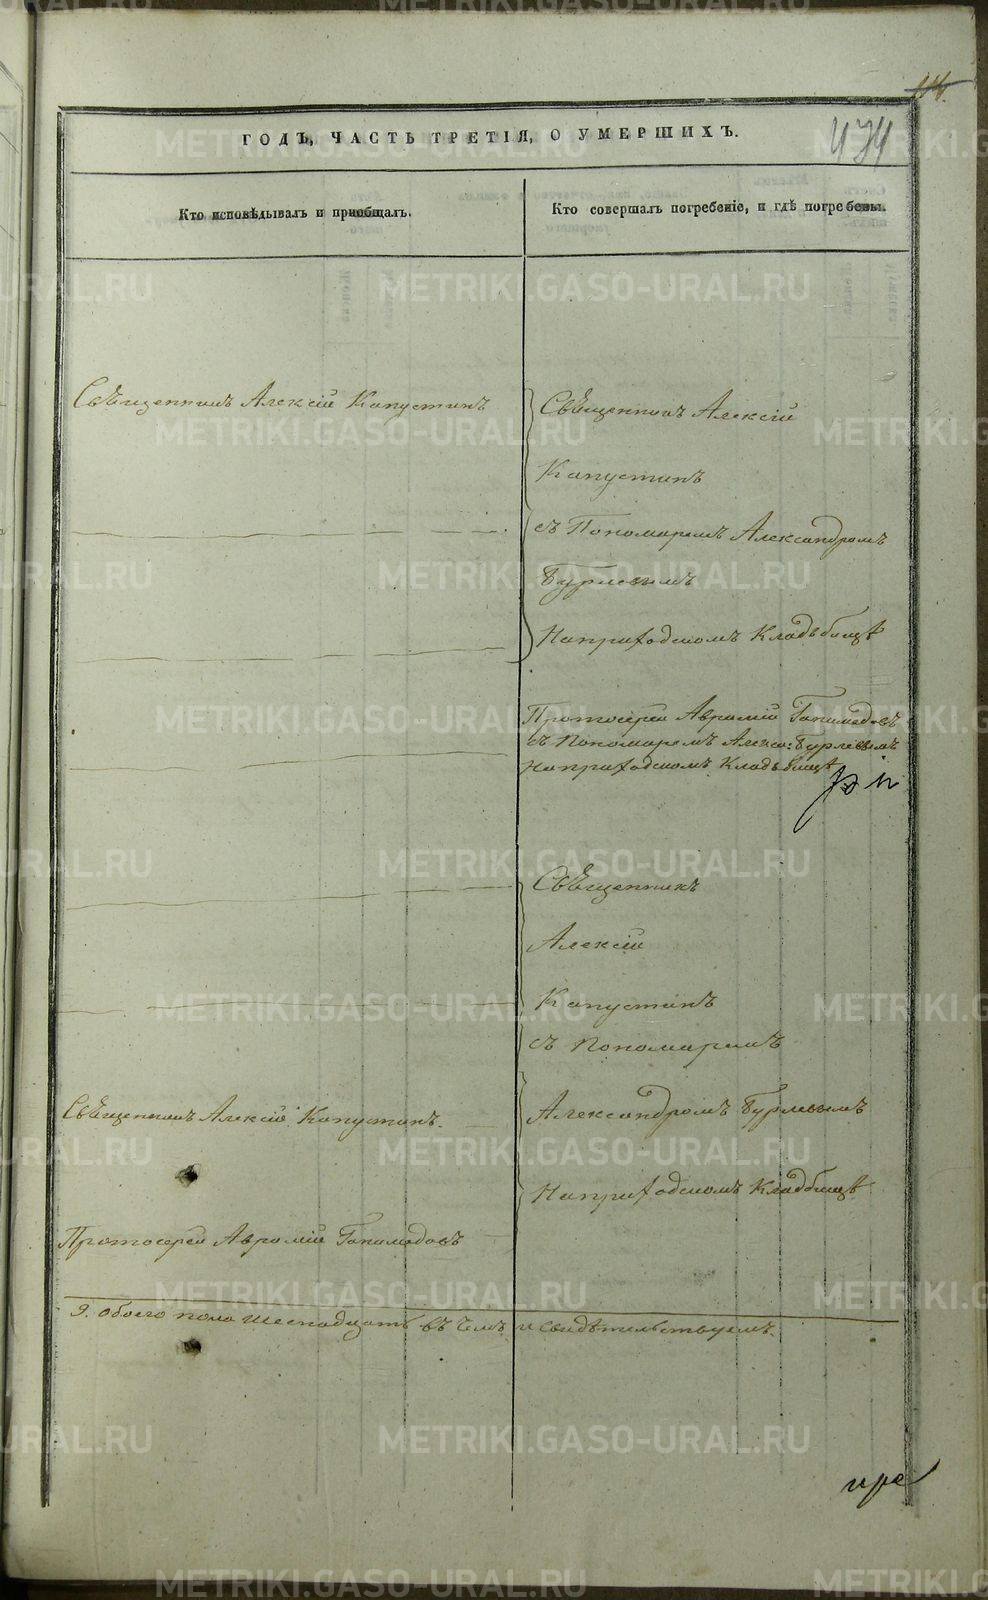 ГОДЪ, ЧАСТЬ ТРЕТІЯ, О УМЕРШИХЪ.
474
Кто исповѣдывалъ и пріобщалъ.
Кто совершалъ погребеніе, и гдѣ погребены.
Священникъ Алексій Капустинъ
Священникъ Алексій
Капустинъ
съ Пономаремъ Александромъ
Бурлевымъ
На приходскомъ Кладьбищѣ
Протоіерей Аврамій
съ Пономаремъ Алекса: Бурлевымъ
На приходскомъ Кладьбищѣ
Священникъ
Алексій
Капустинъ
съ Пономаремъ
Священникъ Алексій Капустинъ.
Александромъ Бурлевымъ
На приходскомъ Кладбищѣ
Протоіерей Аврамій
9. Обоего пола шеснадцать въ чемъ и свидѣтельствуемъ.
METRIKI.GASO-URAL.RU